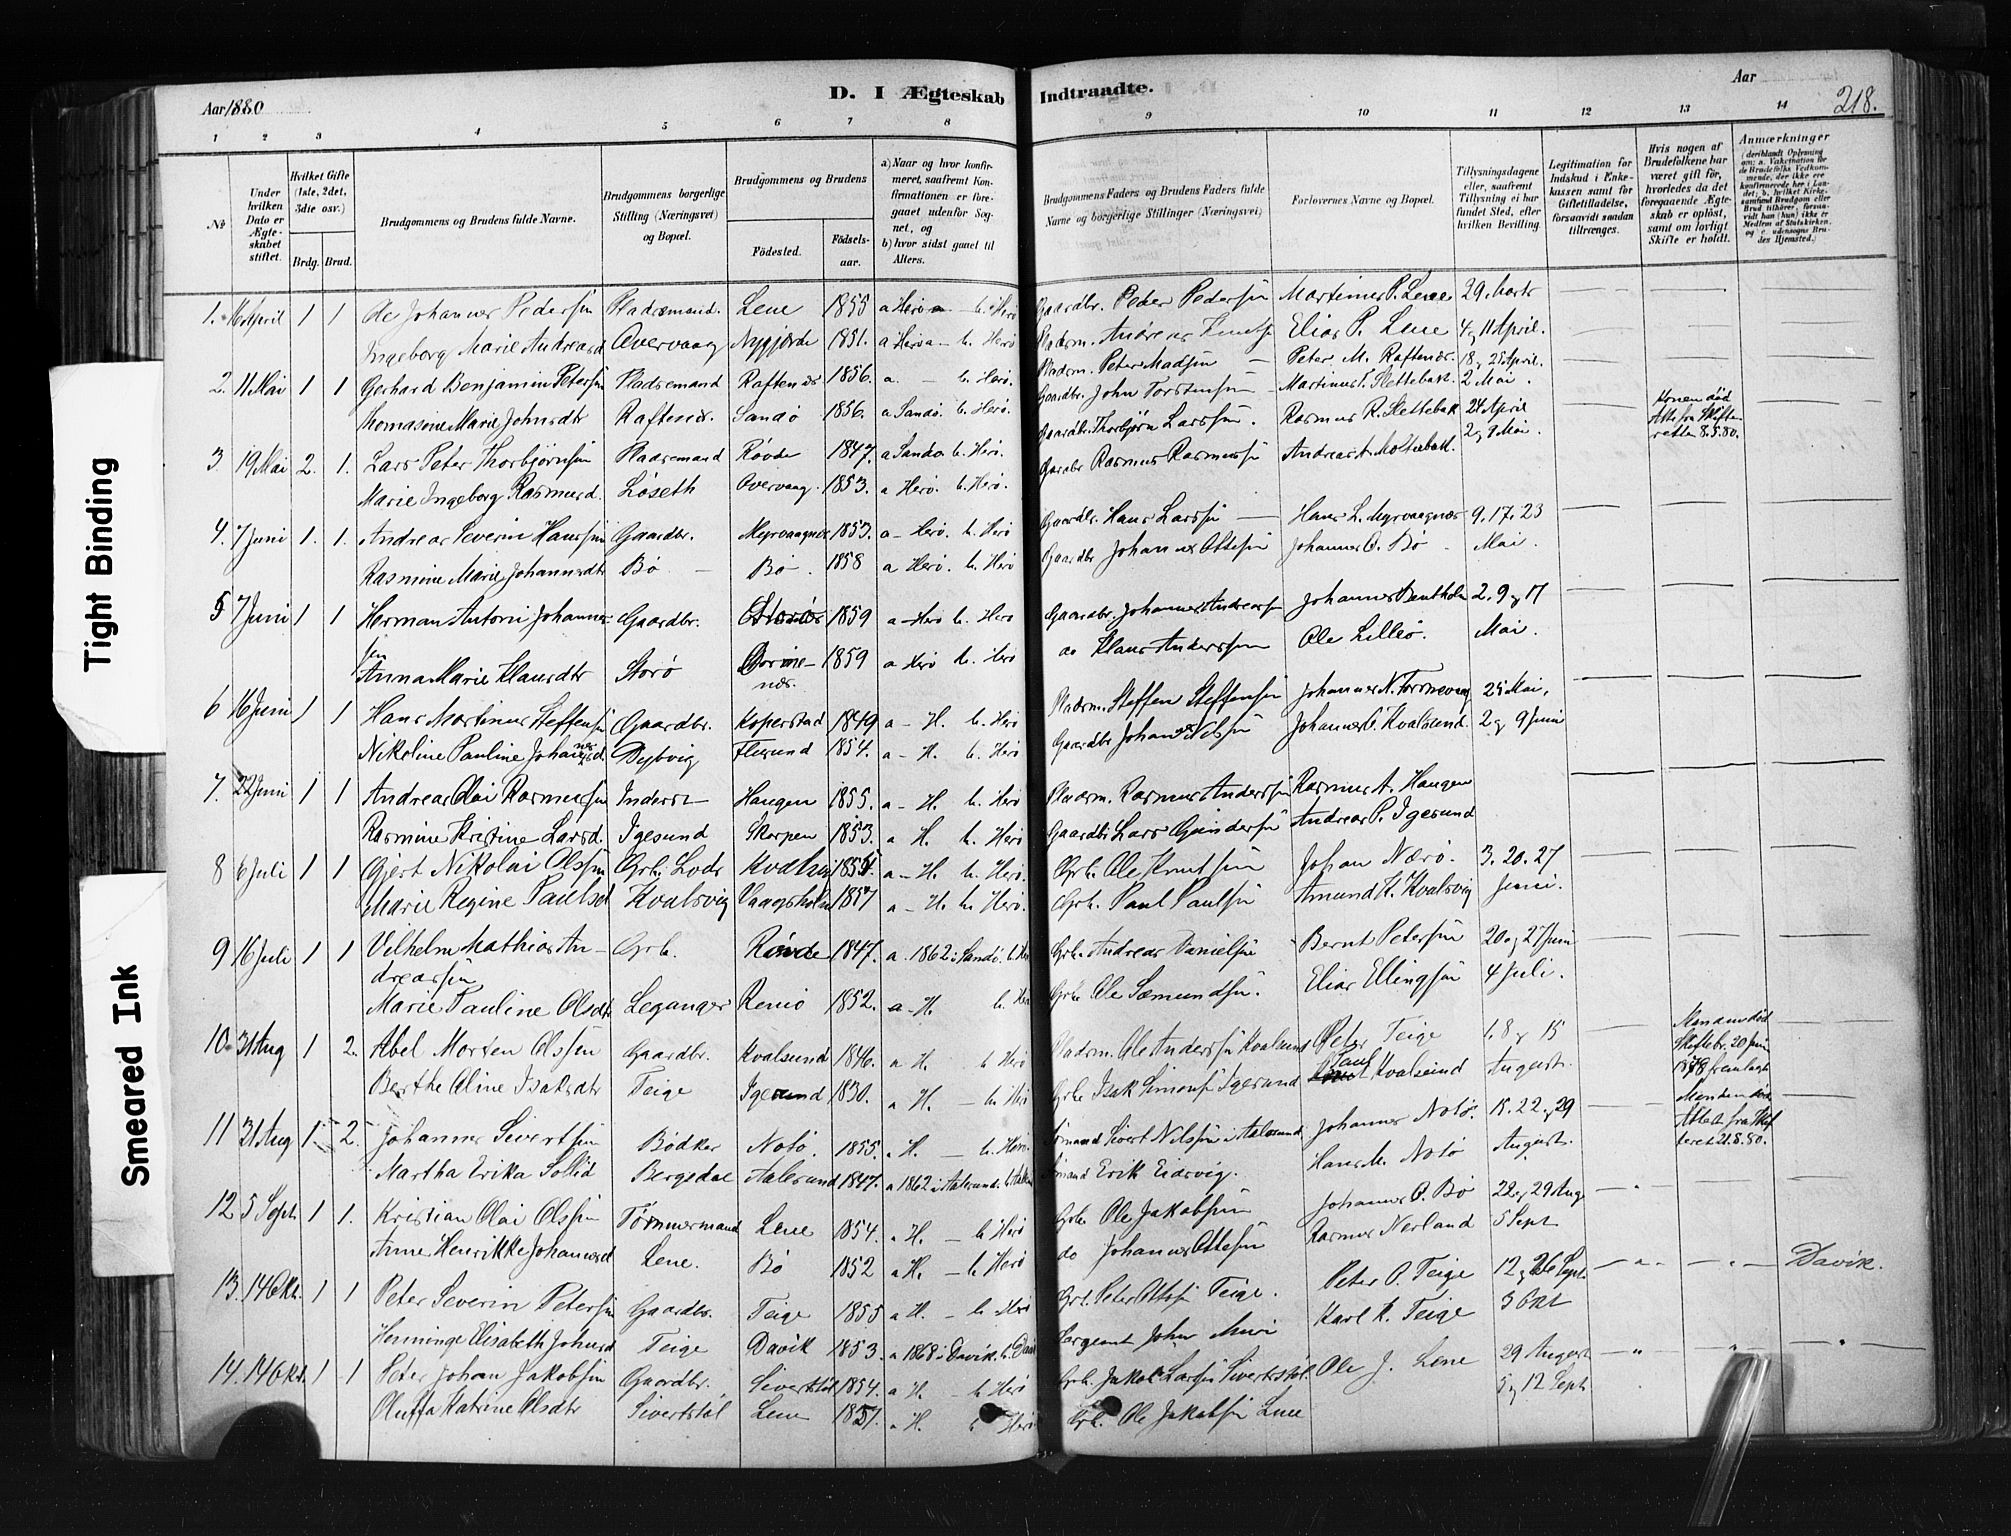 Aar 1880
D. I Ægteskab Indtraadte.
Aar
218.
1 2 3 4 5 6 7 8 9 10 11 12 13 14
№
Under hvilken Dato er Ægteskabet stiftet.
Hvilket Gifte (1ste, 2det, 3die osv.)
Brdg. Brud.
Brudgommens og Brudens fulde Navne.
Brudgommens borgerlige Stilling (Næringsvei) og Bopæl.
Brudgommens og Brudens
Fødested.
Fødselsaar.
a) Naar og hvor konfirmeret, saafremt Konfirmationen er foregaaet udenfor Sognet, og
b) hvor sidst gaaet til Alters.
Brudgommens Faders og Brudens Faders fulde Navne og borgerlige Stillinger (Næringsvei)
Forlovernes Navne og Bopæl.
Tillysningsdagene eller, saafremt Tillysning ei har fundet Sted, efter hvilken Bevilling.
Legitimation for Indskud i Enkekassen samt for Giftetilladelse, forsaavidt saadan tiltrænges.
Hvis nogen af Brudefolkene har været gift før, hvorledes da det foregaaende Ægteskab er opløst, samt om lovligt Skifte er holdt.
Anmærkninger
1. 16 April 1 1 Ole Johannes Pedersen Pladsemand. Lene 1855 a Herø b. Herø Gaardbr. Peder Pedersen Martinus P. Lene 29 Marts
Ingeborg Marie Andreasd Overvaag Nygjerde 1851. a Herø b. Herø Pladsm. Andreas Knuts Elias P. Lene 4 og 11 April.
2. 11 Mai 1 1 Gerhard Benjamin Petersen Pladsemand Raftenes 1856. a. — b. Herø. Pladsm. Peter Madsen Peter M. Raftenes. 18 og 25 April.
Thomasine Marie Johnsdtr Raftenes. Sandø 1856. a Sandø. b. Herø. Gaardbr. John Torstensen Martinus Slettebak 2 Mai.
3 19 Mai 2. 1. Lars Peter Thorbjørnsen Pladsemand Røvde 1847. a Sandø b. Herø. Gaardbr. Thorbjørn Larssen. Rasmus R. Slettebak 24 April 2 og 9 Mai Konen død Attest fra Skifteretten 8.5.80.
Marie Ingeborg Rasmusd. Løseth Overvaag. 1853. a Herø. b. Herø. Gaardbr Rasmus Rasmussen Andreas A. Moltubak.
4. 7 Juni 1. 1. Andreas Severin Hanssen Gaardbr. Myrvaagnes 1853. a — Herø. b. Herø Gaardbr. Hans Larssen Hans L. Myrvaagnes 9. 17. 23
Rasmine Marie Johannesdtr Bø Bø. 1858 a Herø. b. Herø Gaardbr Johannes Ottesen Johannes O. Bø Mai.
5 7 Juni 1 1 Herman Antoni Johannessen Gaardbr. Storø 1859 a — Herø b. Herø Gaardbr. Johannes Andreassen 2. 9 og 17
Anna Marie Klausdtr Storø Dorinenes. 1859 a Herø b. Herø do Klaus Anderssen Ole Lillø. Mai.
6 16 Juni 1 1 Hans Martinus Steffensen Gaardbr. Koperstad 1849 a — H. b. Herø Pladsm. Steffen Steffensen Johannes N. Torrnevag 25 Mai,
Nikoline Pauline Johannesd. Dybvig Flusund 1854. a — H. b. Herø Gaardbr Johannes Nilsen Johannes Kvalsund. 2 og 9 Juni
7. 22 Juni 1 1 Andreas Olai Rasmussen Inderst Haugen 1855. a — H. b. Herø Pladsm. Rasmus Anderssen Rasmus A. Haugen
Rasmine Kristine Larsd. Igesund Skorpen 1853. a H. b. Herø Gaardbr Lars Gundersen Andreas P. Igesund
8 6 Juli 1 1 Gjert Nikolai Olssen Grb. Lods Kvalsvig 1855. a — H. b. Herø. Grb. Ole Knutsen Johan Nærø. 3. 20. 27
Marie Regine Paulsd Kvalsvig Vaagsholm 1857 a — H. b. Herø. Grb. Paul Paulsen Amund K. Kvalsvig Juni.
9 16 Juli 1 1 Vilhelm Mathias Andreassen Grb. Røvde 1847. a. 1862 i Sandø. b. Herø Grb. Andreas Danielsen Bernt Petersen 20 og 27 Juni
Marie Pauline Olsdtr Leganger Remø 1852. a — H. b. Herø Grb Ole Sæmundsen. Elias Ellingsen 4 Juli.
10. 31 Aug 1 2. Abel Morten Olssen Gaardbr. Kvalsund 1846. a H. b Herø Pladsm. Ole Anderssen Kvalsund Peter Teige 1. 8 og 15 Manden død Skiftebr. 20 Juni 1878 fremlagt
Berthe Oline Isaksdtr Teige Igesund 1830. a H. — b. Herø Grb Isak Simons Igesund Paul Kvalsund August.
11 31 Aug 1. 2. Johannes Sivertsen Bødker Notø. 1855. a H. — b. Herø. Sivert Nilssen i Aalesund Johannes Notø. 15. 22. og 29 Manden død Attest fra Skifteret 21.8.80.
Martha Erika Sollid Bergsdal Aalesund 1847. a 1862 i Aalesund. Erik Eidsvig. Hans M. Notø August.
12 5 Sept. 1 1. Kristian Olai Olssen Tømmermand Lene 1854. a H. — b Herø Grb. Ole Jakobsen Johannes O. Bø 22 og 29 Aug
Anne Henrikke Johannesd Lene. Bø 1852 a H. — b Herø do Johannes Ottesen Rasmus Nerland 5 Sept
13. 14 Okt. 1 1 Peter Severin Petersen Gaardbr. Teige 1855 a H. — b. Herø Grb. Peter Olssen Teige. Peter O. Teige 12 og 26 Sept Davik.
Henninge Elisabeth Johnsd Teige Davik 1853. a 1868 i Davik. b. Davik Sergeant John Muri Karl K. Teige 3 Okt
14. 14 Okt. 1 1 Peter Johan Jakobsen Gaardbr. Sivertstøl 1854. a H. — b Herø Grb. Jakob Larssen Sivertstøl. Ole J. Lene 29 August
Oluffa Katrine Olsdtr Sivertstøl Lene 1857. a H. b Herø Grb. Ole Jakobsen Lene 5 og 12 Sept
Tight Binding
Smeared Ink